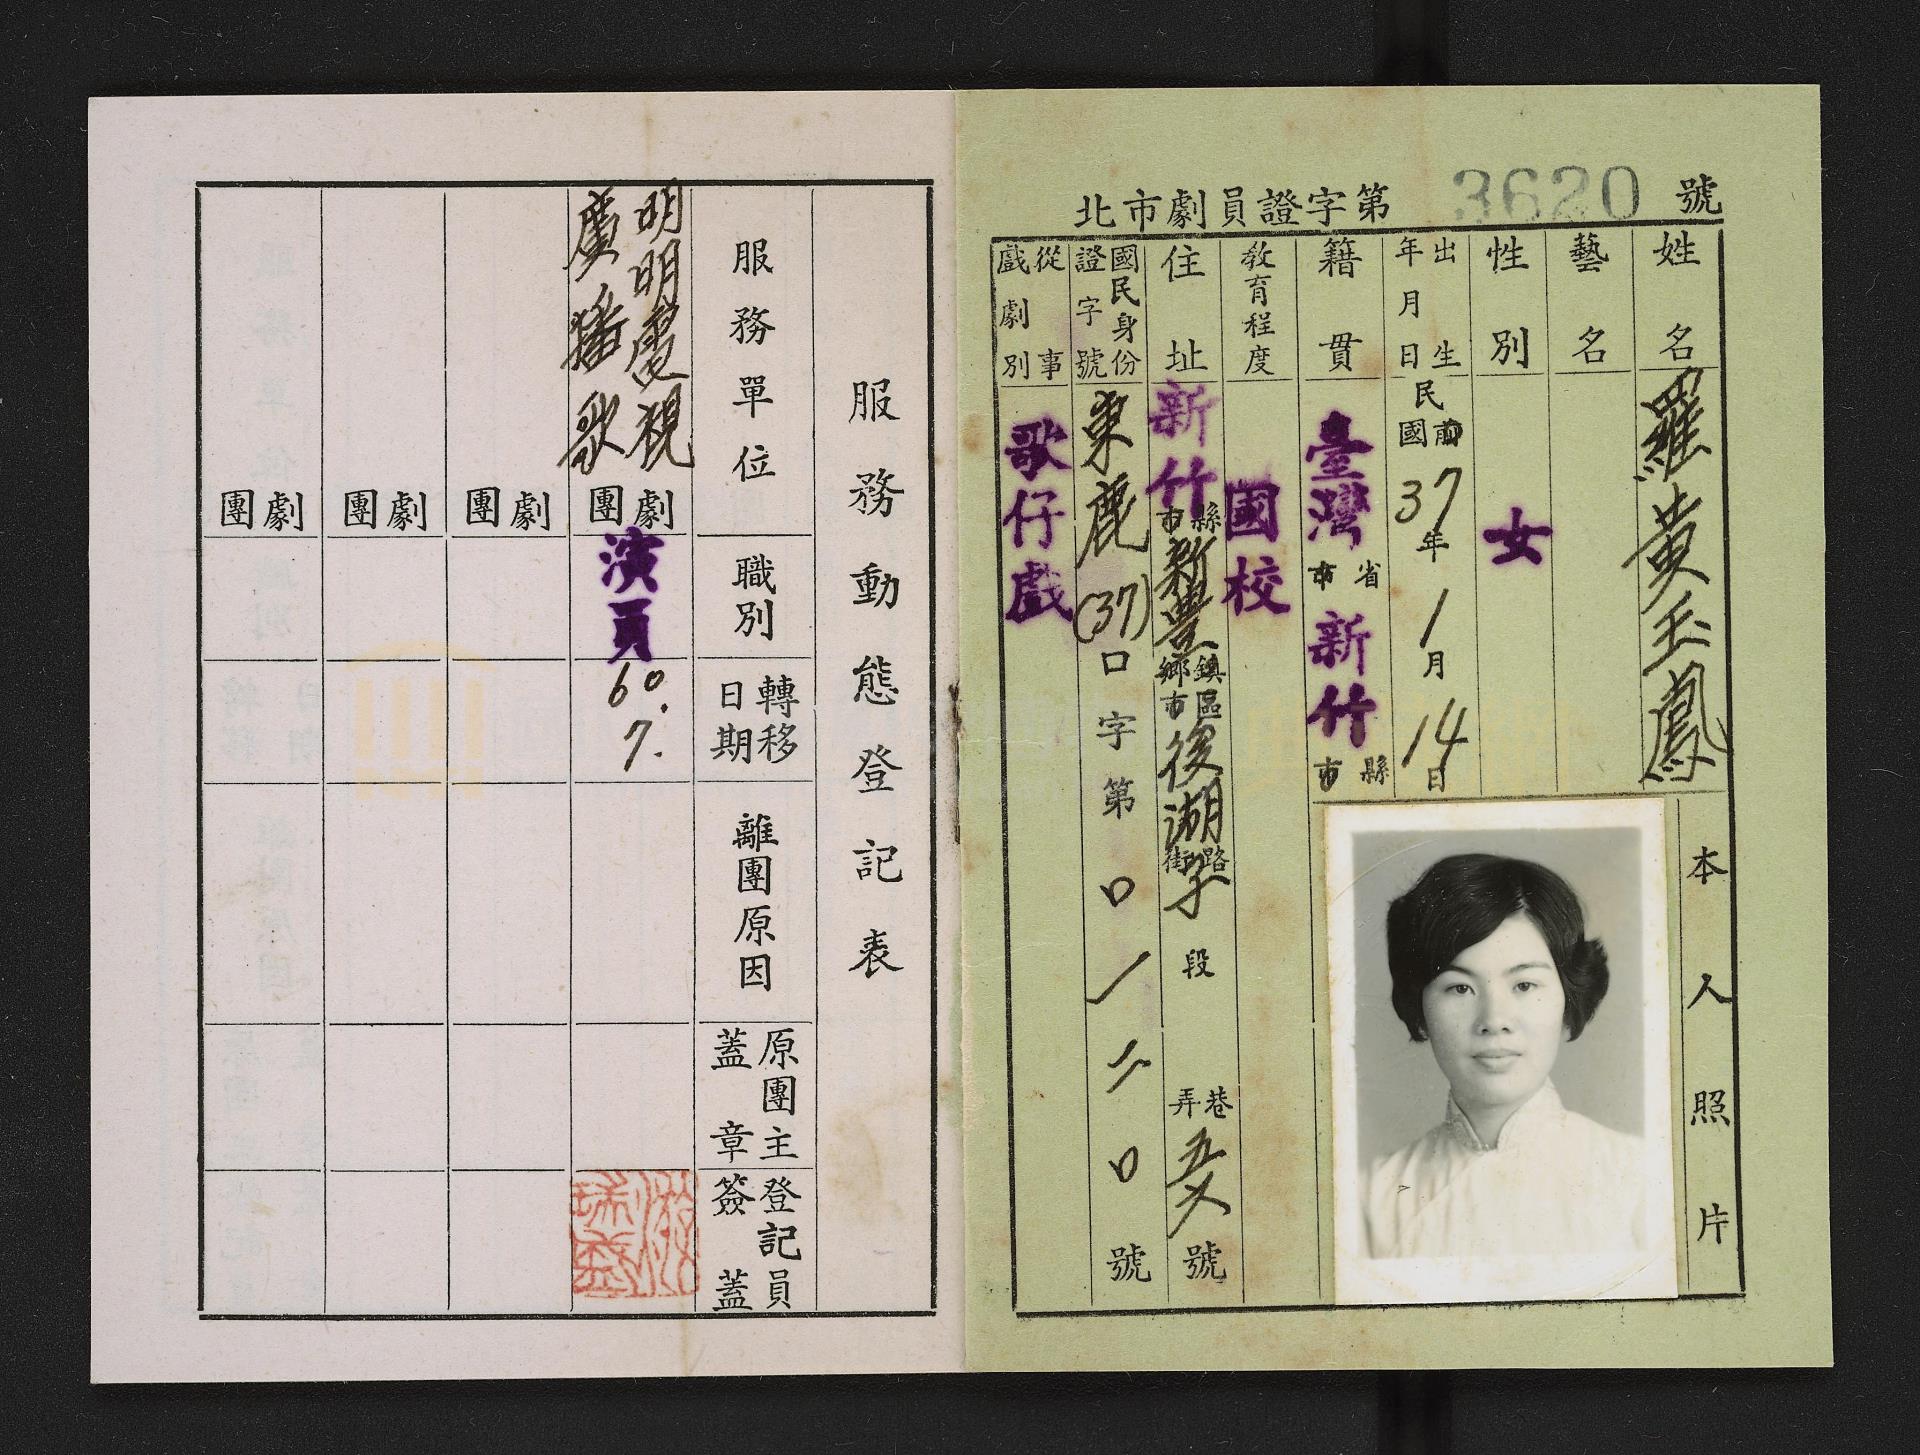 北市劇員證字第 3620 號
姓名 羅黃玉鳳
藝名
性別 女
出生年月日 民國前 37年1月14日
籍貫 臺灣省市 新竹縣市
教育程度 國校
住址 新竹縣市新豐鄉鎮市區後湖子街路段巷弄 號
國民身份證字號 東鹿(37)口字第0一二0號
從事戲劇別 歌仔戲
本人照片
服務動態登記表
服務單位 職別 轉移日期 離團原因 原團主蓋章 登記員簽蓋
明明電視廣播歌劇團 演員 60.7.
劇團
劇團
劇團